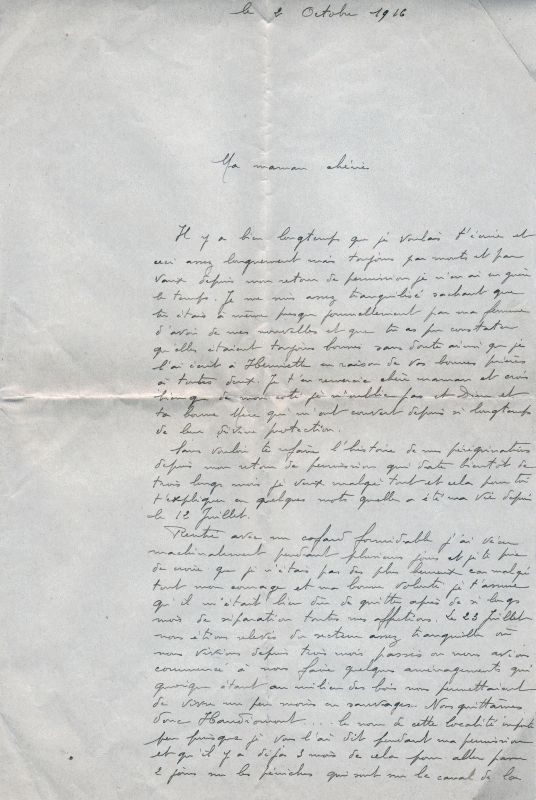 le 2 Octobre 1916
Ma maman chérie
Il y a bien longtemps que je voulais t'écrire et
ceci assez longuement mais toujours par monts et par
vaux depuis mon retour de permission je n'en ai eu guère
le temps. Je me suis assez tranquilisé sachant que
tu étais à même presque journellement par ma femme
d'avoir de mes nouvelles et que tu as pu constater
qu'elles étaient toujours bonnes sans doute ainsi que je
l'ai écrit à Henriette en raison de vos bonnes prières
à toutes deux. Je t'en remercie chère maman et crois
bien que de mon côté je n'oublie pas et Dieu et
ta bonne Mère qui m'ont couvert depuis si longtemps
de leur divine protection.
Sans vouloir te refaire l'histoire de mes pérégrinations
depuis mon retour de permission qui date bientôt de
trois longs mois je veux malgré tout et cela pour toi
t'expliquer en quelques mots quelle a été ma vie depuis
le 12 Juillet.
Rentré avec un cafard formidable j'ai vécu
machinalement pendant plusieurs jours et je te prie
de croire que je n'étais pas des plus heureux car malgré
tout mon courage et ma bonne volonté je t'assure
qu'il m'était bien dur de quitter après de si longs
mois de séparation toutes mes affections. Le 23 Juillet
nous étions relevés du secteur assez tranquille où
nous vivions depuis trois mois passés où nous avions
commencé à nous faire quelques aménagements qui
quoique étant au milieu des bois nous permettaient
de vivre un peu moins en sauvages. Nous quittâmes
donc Haudiomont .... le nom de cette localité importe
peu puisque je vous l'ai dit pendant ma permission
et qu'il y a déjà 3 mois de cela pour aller passer
2 jours sur les péniches qui sont sur le canal de la